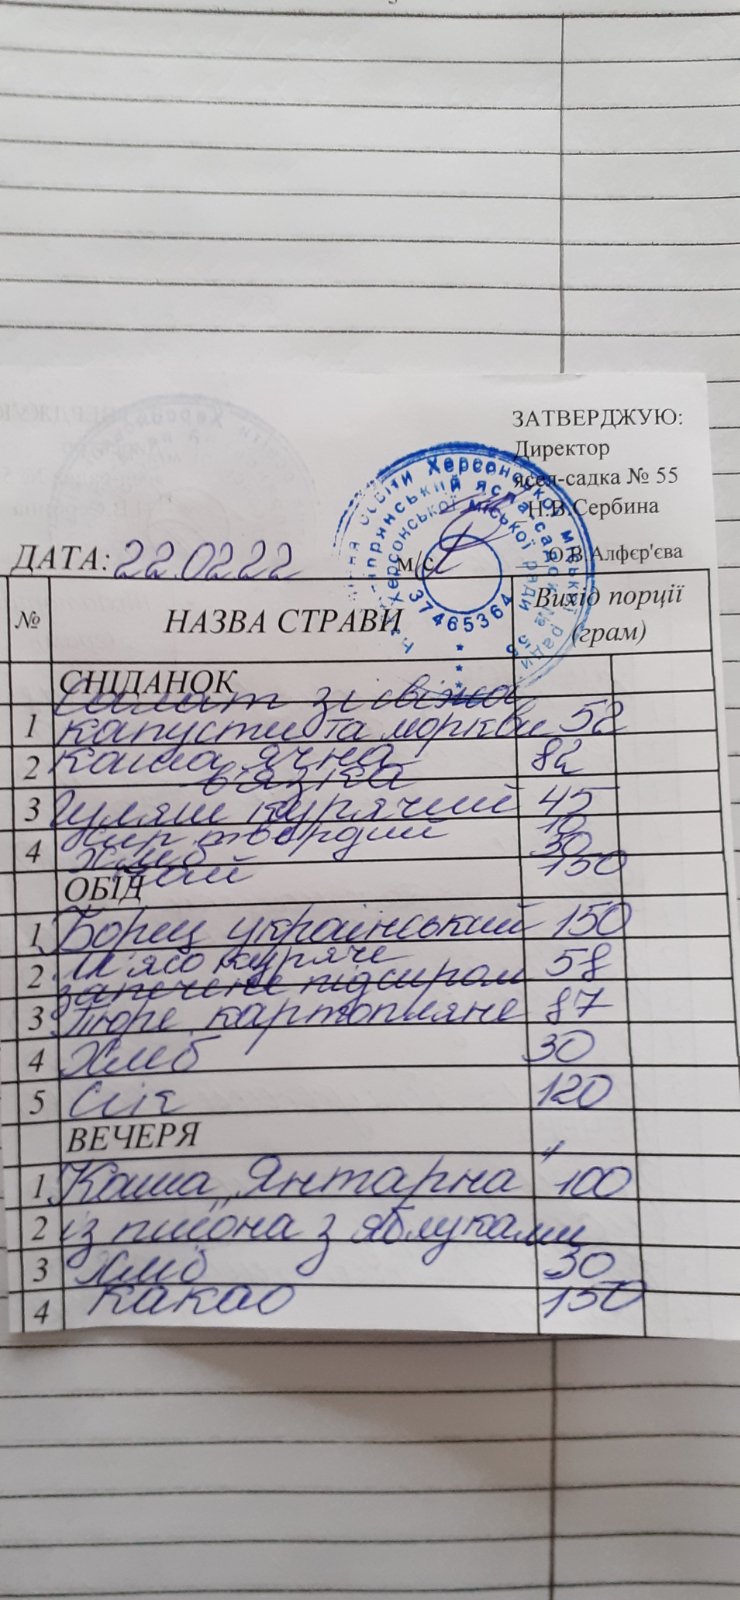 ЗАТВЕРДЖУЮ:
Директор
ясел-садка № 55
Н.В.Сербина
ДАТА: 22.02.22 м/с О.В.Алфєр'єва
37465364
№ НАЗВА СТРАВИ Вихід порції (грам)
СНІДАНОК
Салат зі свіжої
1 капусти та моркви 52
2 Каша ячна 82
в'язка
3 Гуляш курячий 45
Сир твердий 10
4 Хліб 30
Чай 150
ОБІД
1 Борщ український 150
2 М'ясо куряче 58
запечене під сиром
3 Пюре картопляне 87
4 Хліб 30
5 Сік 120
ВЕЧЕРЯ
1 Каша „Янтарна" 100
2 із пшона з яблуками
3 Хліб 30
4 Какао 150